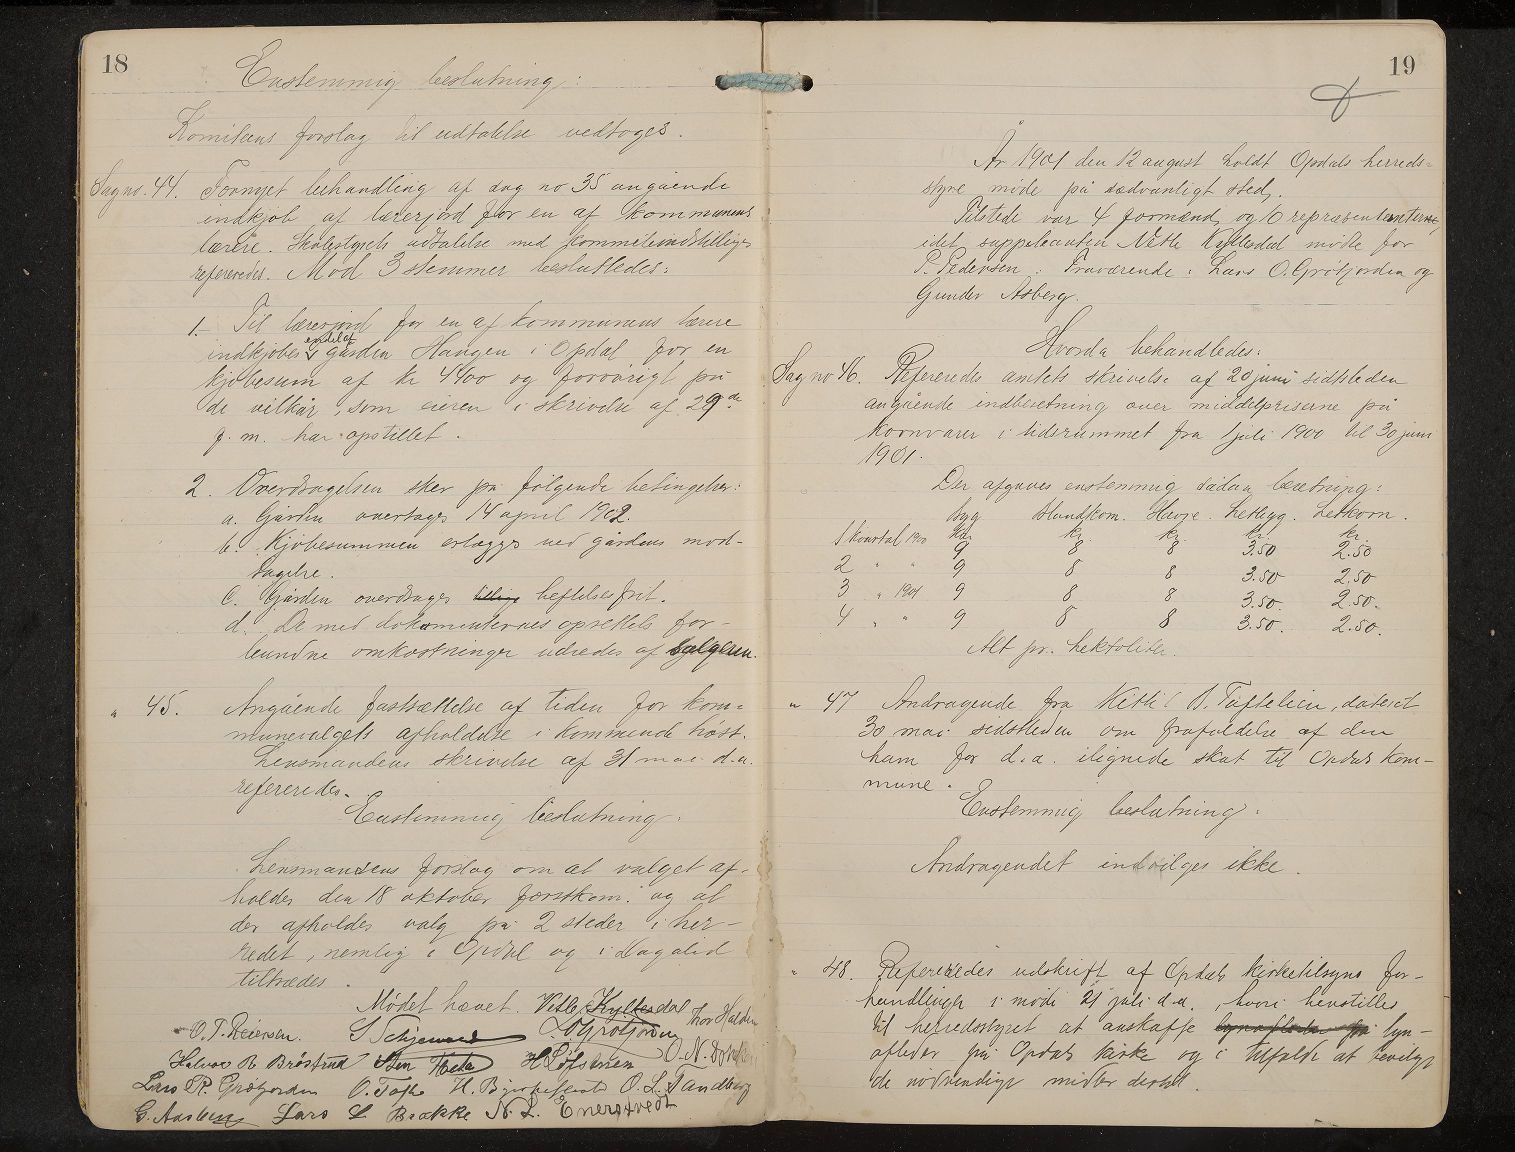 18
Enstemmig beslutning:
Komiteens forslag til udtalelse vedtoges.
Sag no. 44. Fornyet behandling af sag no 35 angående
indkjøb af lærerjord for en af kommunens
lærere. Skolestyrets udtalelse med kommiteindstilling
refereredes. Mod 3 stemmer besluttedes:
1. Til lærerjord for en af kommunens lærere
indkjøbes en del af gården Haugen i Opdal for en
kjøbesum af kr 4400 og forøvrigt på
de vilkår, som eieren i skrivelse af 29de
f. m. har opstillet.
2. Overdragelsen sker på følgende betingelser:
a. Gården overtages 14 april 1902.
b. Kjøbesummen erlægges ved gårdens mod-
tagelse.
c. Gården overdrages heftelsesfrit.
d. De med dokumenternes oprettelse for-
bundne omkostninger udredes af sælgeren.
" 45. Angående fastsættelse af tiden for kom-
munevalgets afholdelse i kommende høst.
Lensmandens skrivelse af 31 mai d.a.
refereredes.
Enstemmig beslutning:
Lensmandens forslag om at valget af-
holdes den 18 oktober førstkom. og at
der afholdes valg på 2 steder i her-
redet, nemlig i Opdal og i Dagalid
tiltrædes.
Mødet hævet. Vetle Kyllesdal
O. T. Reiersen. S Schjervend O Grøtjorden Thor Halden
Halvor R Brøstrud Sten O. N.
Lars P. Grøtjorden O. Tofte H. O. L. Sandberg
G. Aasberg Lars L Brække N. L. Enerstvedt
19
År 1901 den 12 august holdt Opdals herreds-
styre møde på sædvanligt sted.
Tilstede var 4 formænd og 10 repræsentanter,
idet suppleanten Vetle Kyllesdal mødte for
P. Pedersen. Fraværende: Lars O. Grøtjorden og
Gunder Asberg.
Hvorda behandledes:
Sag no 46. Refereredes amtets skrivelse af 20 juni sidstleden
angående indberetning over middelpriserne på
kornvarer i tidsrummet fra 1 juli 1900 til 30 juni
1901.
Der afgaves enstemmig sådan beretning:
Byg Blandkorn. Havre. Letbyg. Letkorn.
Kr. kr. kr. kr. kr.
1 Kvartal 1900 9 8 8 3.50 2.50
2 " " 9 8 8 3.50 2.50
3 " 1901 9 8 8 3.50. 2.50.
4 " " 9 8 8 3.50. 2.50.
Alt pr. hektoliter.
" 47 Andragende fra Kittil A. Tøftelien, dateret
30 mai sidstleden om frafaldelse af den
ham for d.a. ilignede skat til Opdals kom-
mune.
Enstemmig beslutning:
Andragendet indvilges ikke.
" 48. Refereredes udskrift af Opdals kirketilsyns for-
handlinger i møde 21 juli d.a., hvori henstilles
til herredsstyret at anskaffe lyn-
afleder på Opdals kirke og i tilfælde at bevilge
de nødvendige midler dertil.